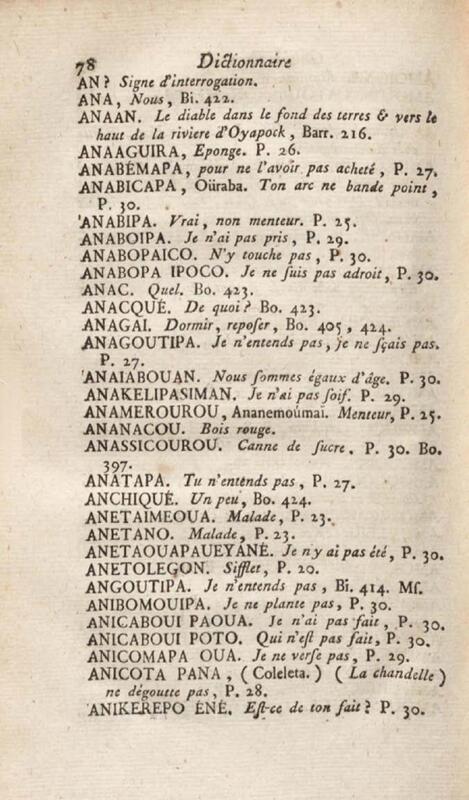 78 Dictionnaire
AN? Signe d'interrogation.
ANA, Nous, Bi. 422.
ANAAN. Le diable dans le fond des terres & vers le
haut de la riviere d'Oyapock, Barr. 216.
ANAAGUIRA, Eponge. P. 26.
ANABÉMAPA, pour ne l'avoir pas acheté, P. 27.
ANABICAPA, Oüraba. Ton arc ne bande point,
P. 30.
ANABIPA. Vrai, non menteur. P. 25.
ANABOIPA. Je n'ai pas pris, P. 29.
ANABOPAICO. N'y touche pas, P. 30.
ANABOPA IPOCO. Je ne suis pas adroit, P. 30.
ANAC. Quel. Bo. 423.
ANACQUÉ. De quoi? Bo. 423.
ANAGAI. Dormir, reposer, Bo. 405, 424.
ANAGOUTIPA. Je n'entends pas, je ne sçais pas.
P. 27.
ANAIABOUAN. Nous sommes égaux d'âge. P. 30.
ANAKELIPASIMAN. Je n'ai pas soif. P. 29.
ANAMEROUROU, Ananemoúmaï. Menteur, P. 25.
ANANACOU. Bois rouge.
ANASSICOUROU. Canne de sucre. P. 30. Bo.
397.
ANATAPA. Tu n'entends pas, P. 27.
ANCHIQUÉ. Un peu, Bo. 424.
ANETAIMEOUA. Malade, P. 23.
ANETANO. Malade, P. 23.
ANETAOUAPAUEYANÉ. Je n'y ai pas été, P. 30.
ANETOLEGON. Sifflet, P. 20.
ANGOUTIPA. Je n'entends pas, Bi. 414. Ms.
ANIBOMOUIPA. Je ne plante pas, P. 30.
ANICABOUI PAOUA. Je n'ai pas fait, P. 30.
ANICABOUI POTO. Qui n'est pas fait, P. 30.
ANICOMAPA OUA. Je ne verse pas, P. 29.
ANICOTA PANA, (Coleleta.) (La chandelle)
ne dégoutte pas, P. 28.
ANIKEREPO ÉNÉ. Est-ce de ton fait? P. 30.